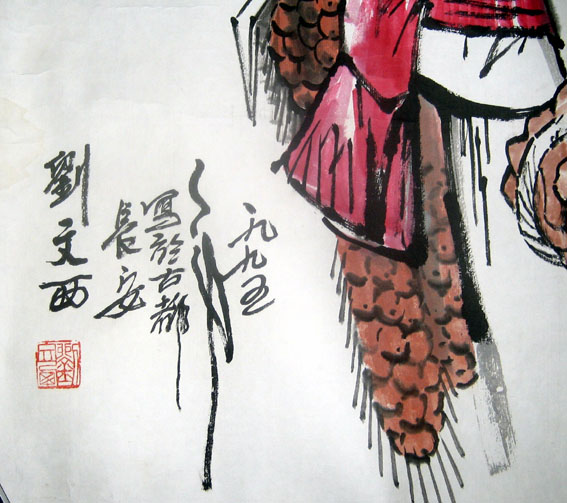 一九九五
寫於古都
長安
劉文西